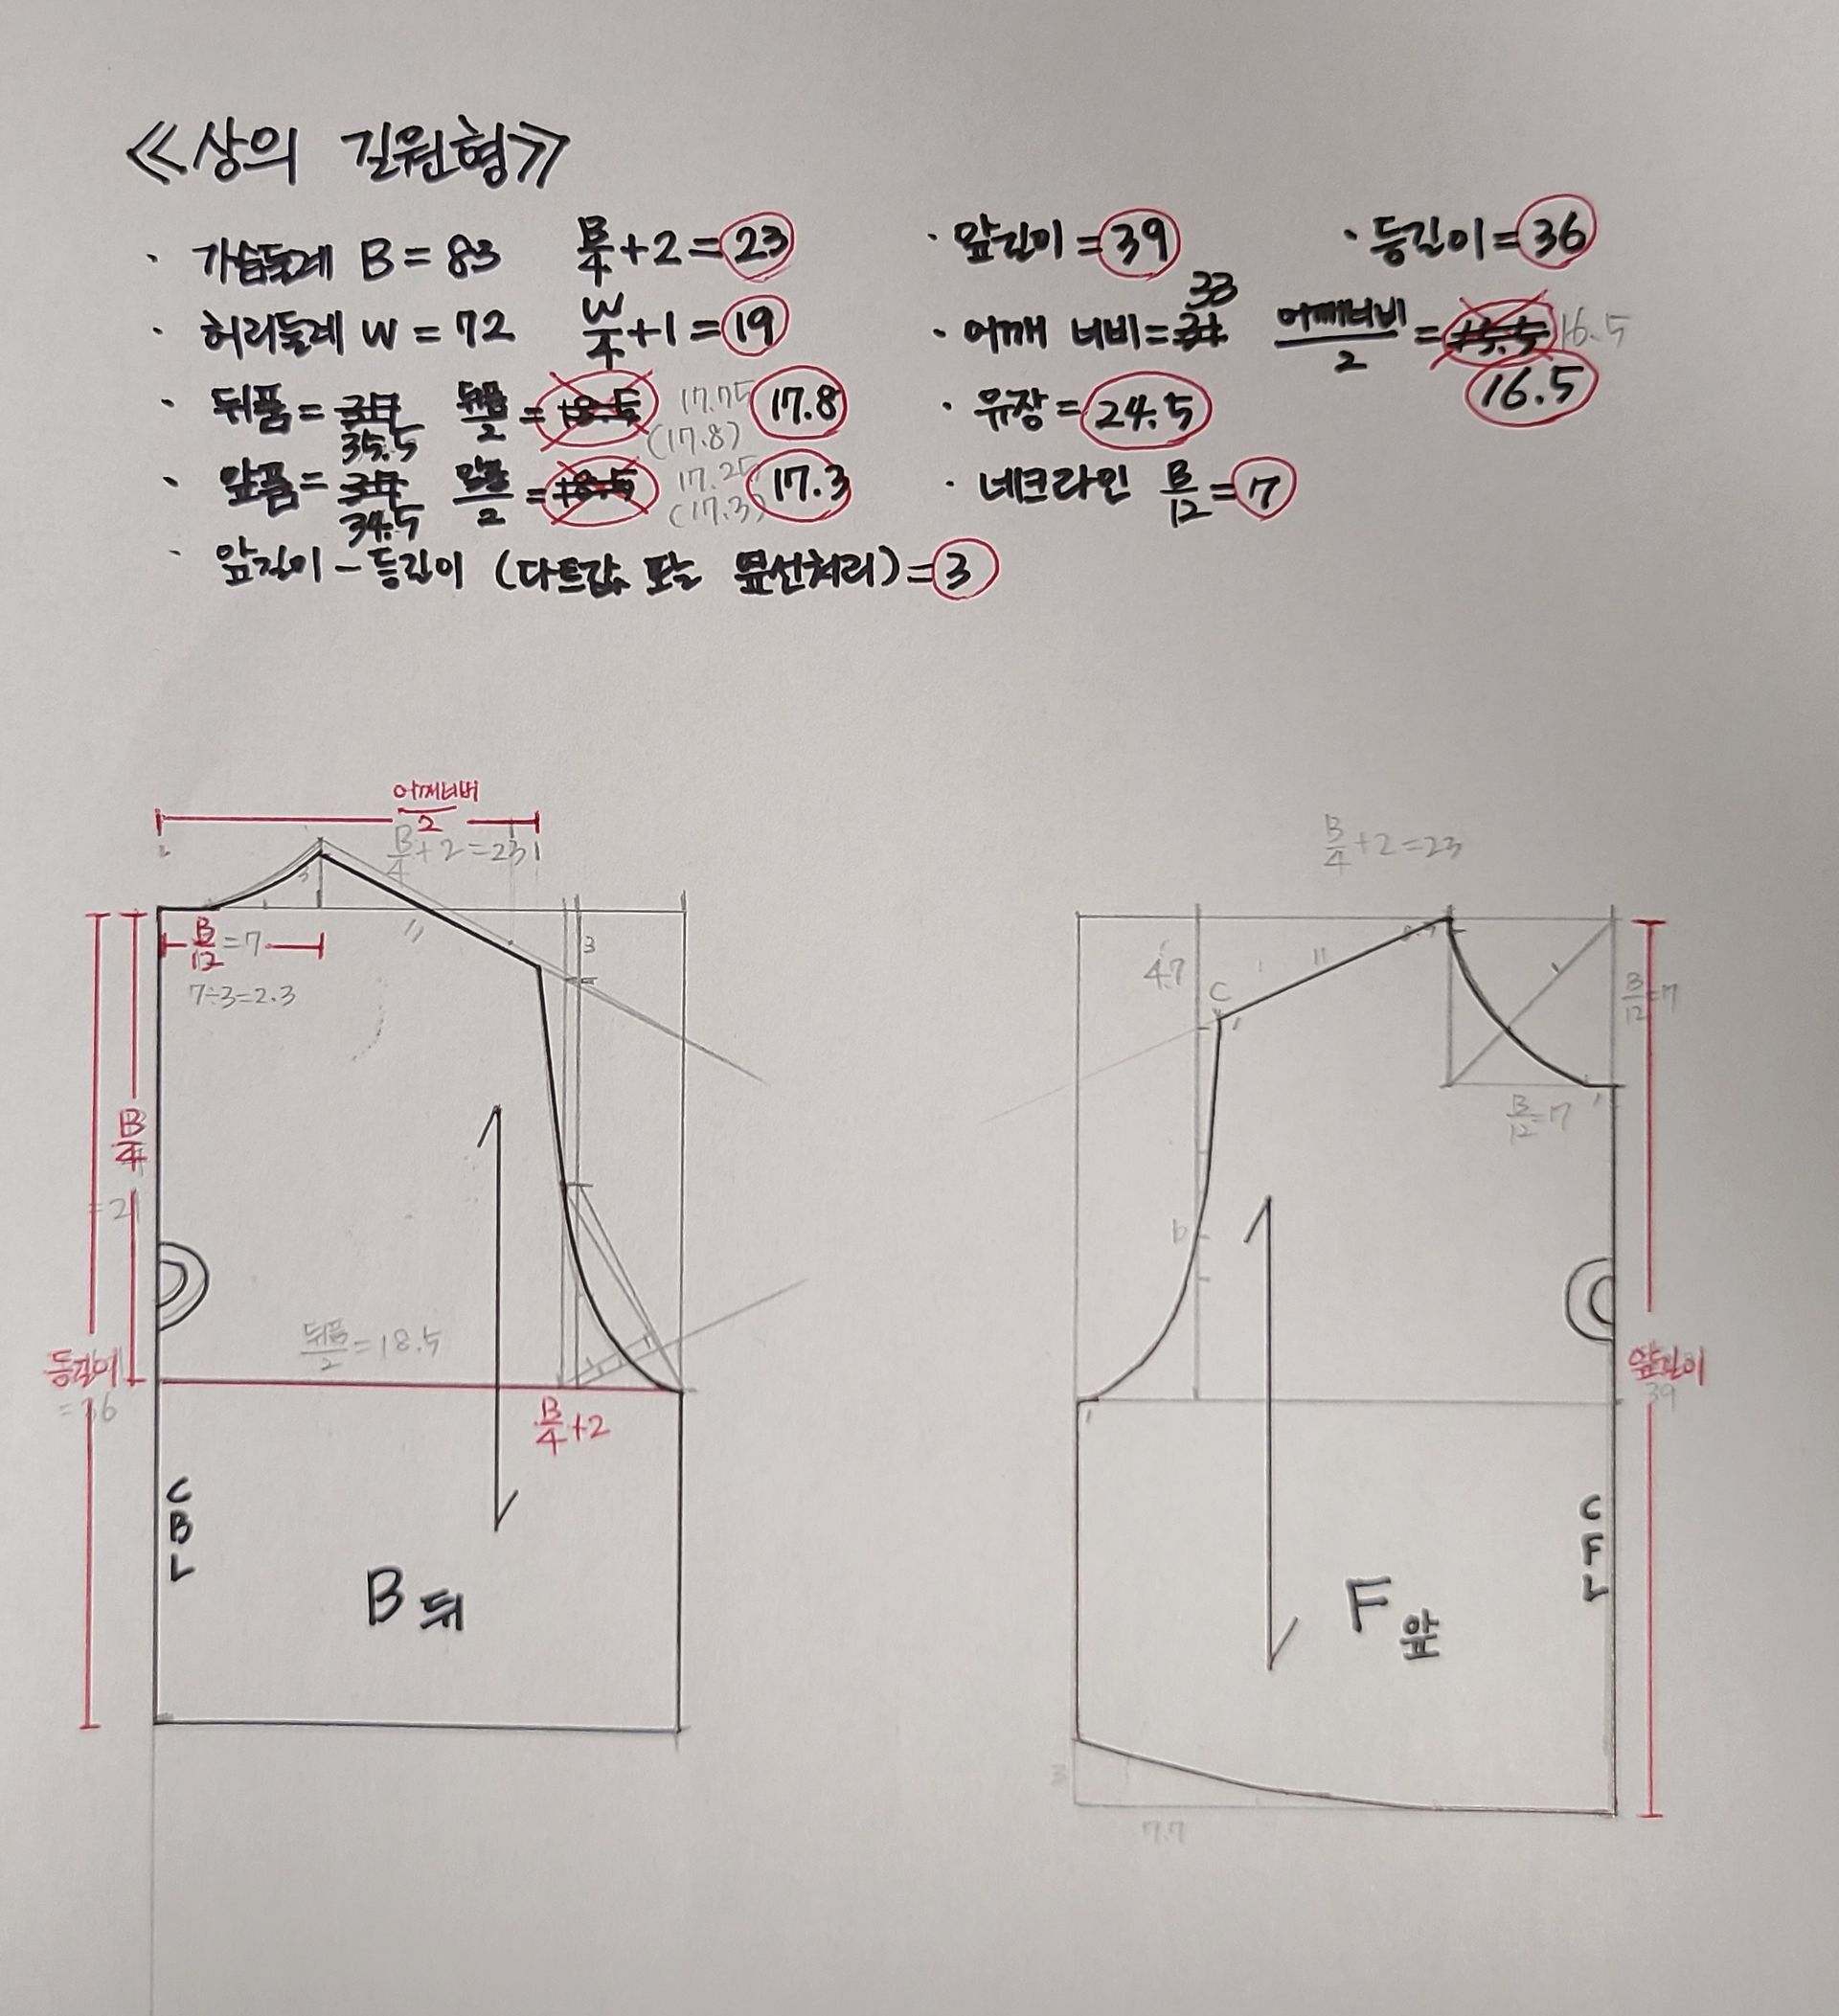 ≪상의 길원형≫
· 가슴둘레 B = 83 B/4 + 2 = 23
· 허리둘레 W = 72 W/4 + 1 = 19
· 뒤품 = 37 35.5 뒤품/2 = 18.5 17.75 (17.8) 17.8
· 앞품 = 37 34.5 앞품/2 = 18.5 17.25 (17.3) 17.3
· 앞길이 - 등길이 (다트값 또는 옆선처리) = 3
· 앞길이 = 39 · 등길이 = 36
· 어깨 너비 = 33 어깨너비/2 = 16.5 16.5
· 유장 = 24.5
· 네크라인 B/12 = 7
어깨너비/2
B/4 + 2 = 23
3
B/12 = 7
7÷3=2.3
3
B/4
= 21
뒤품/2 = 18.5
등길이
= 36
B/4 + 2
CBL
B 뒤
B/4 + 2 = 23
4.7
C
B/12 = 7
B/12 = 7
1
b
앞길이
39
1
CFL
F 앞
3
7.7